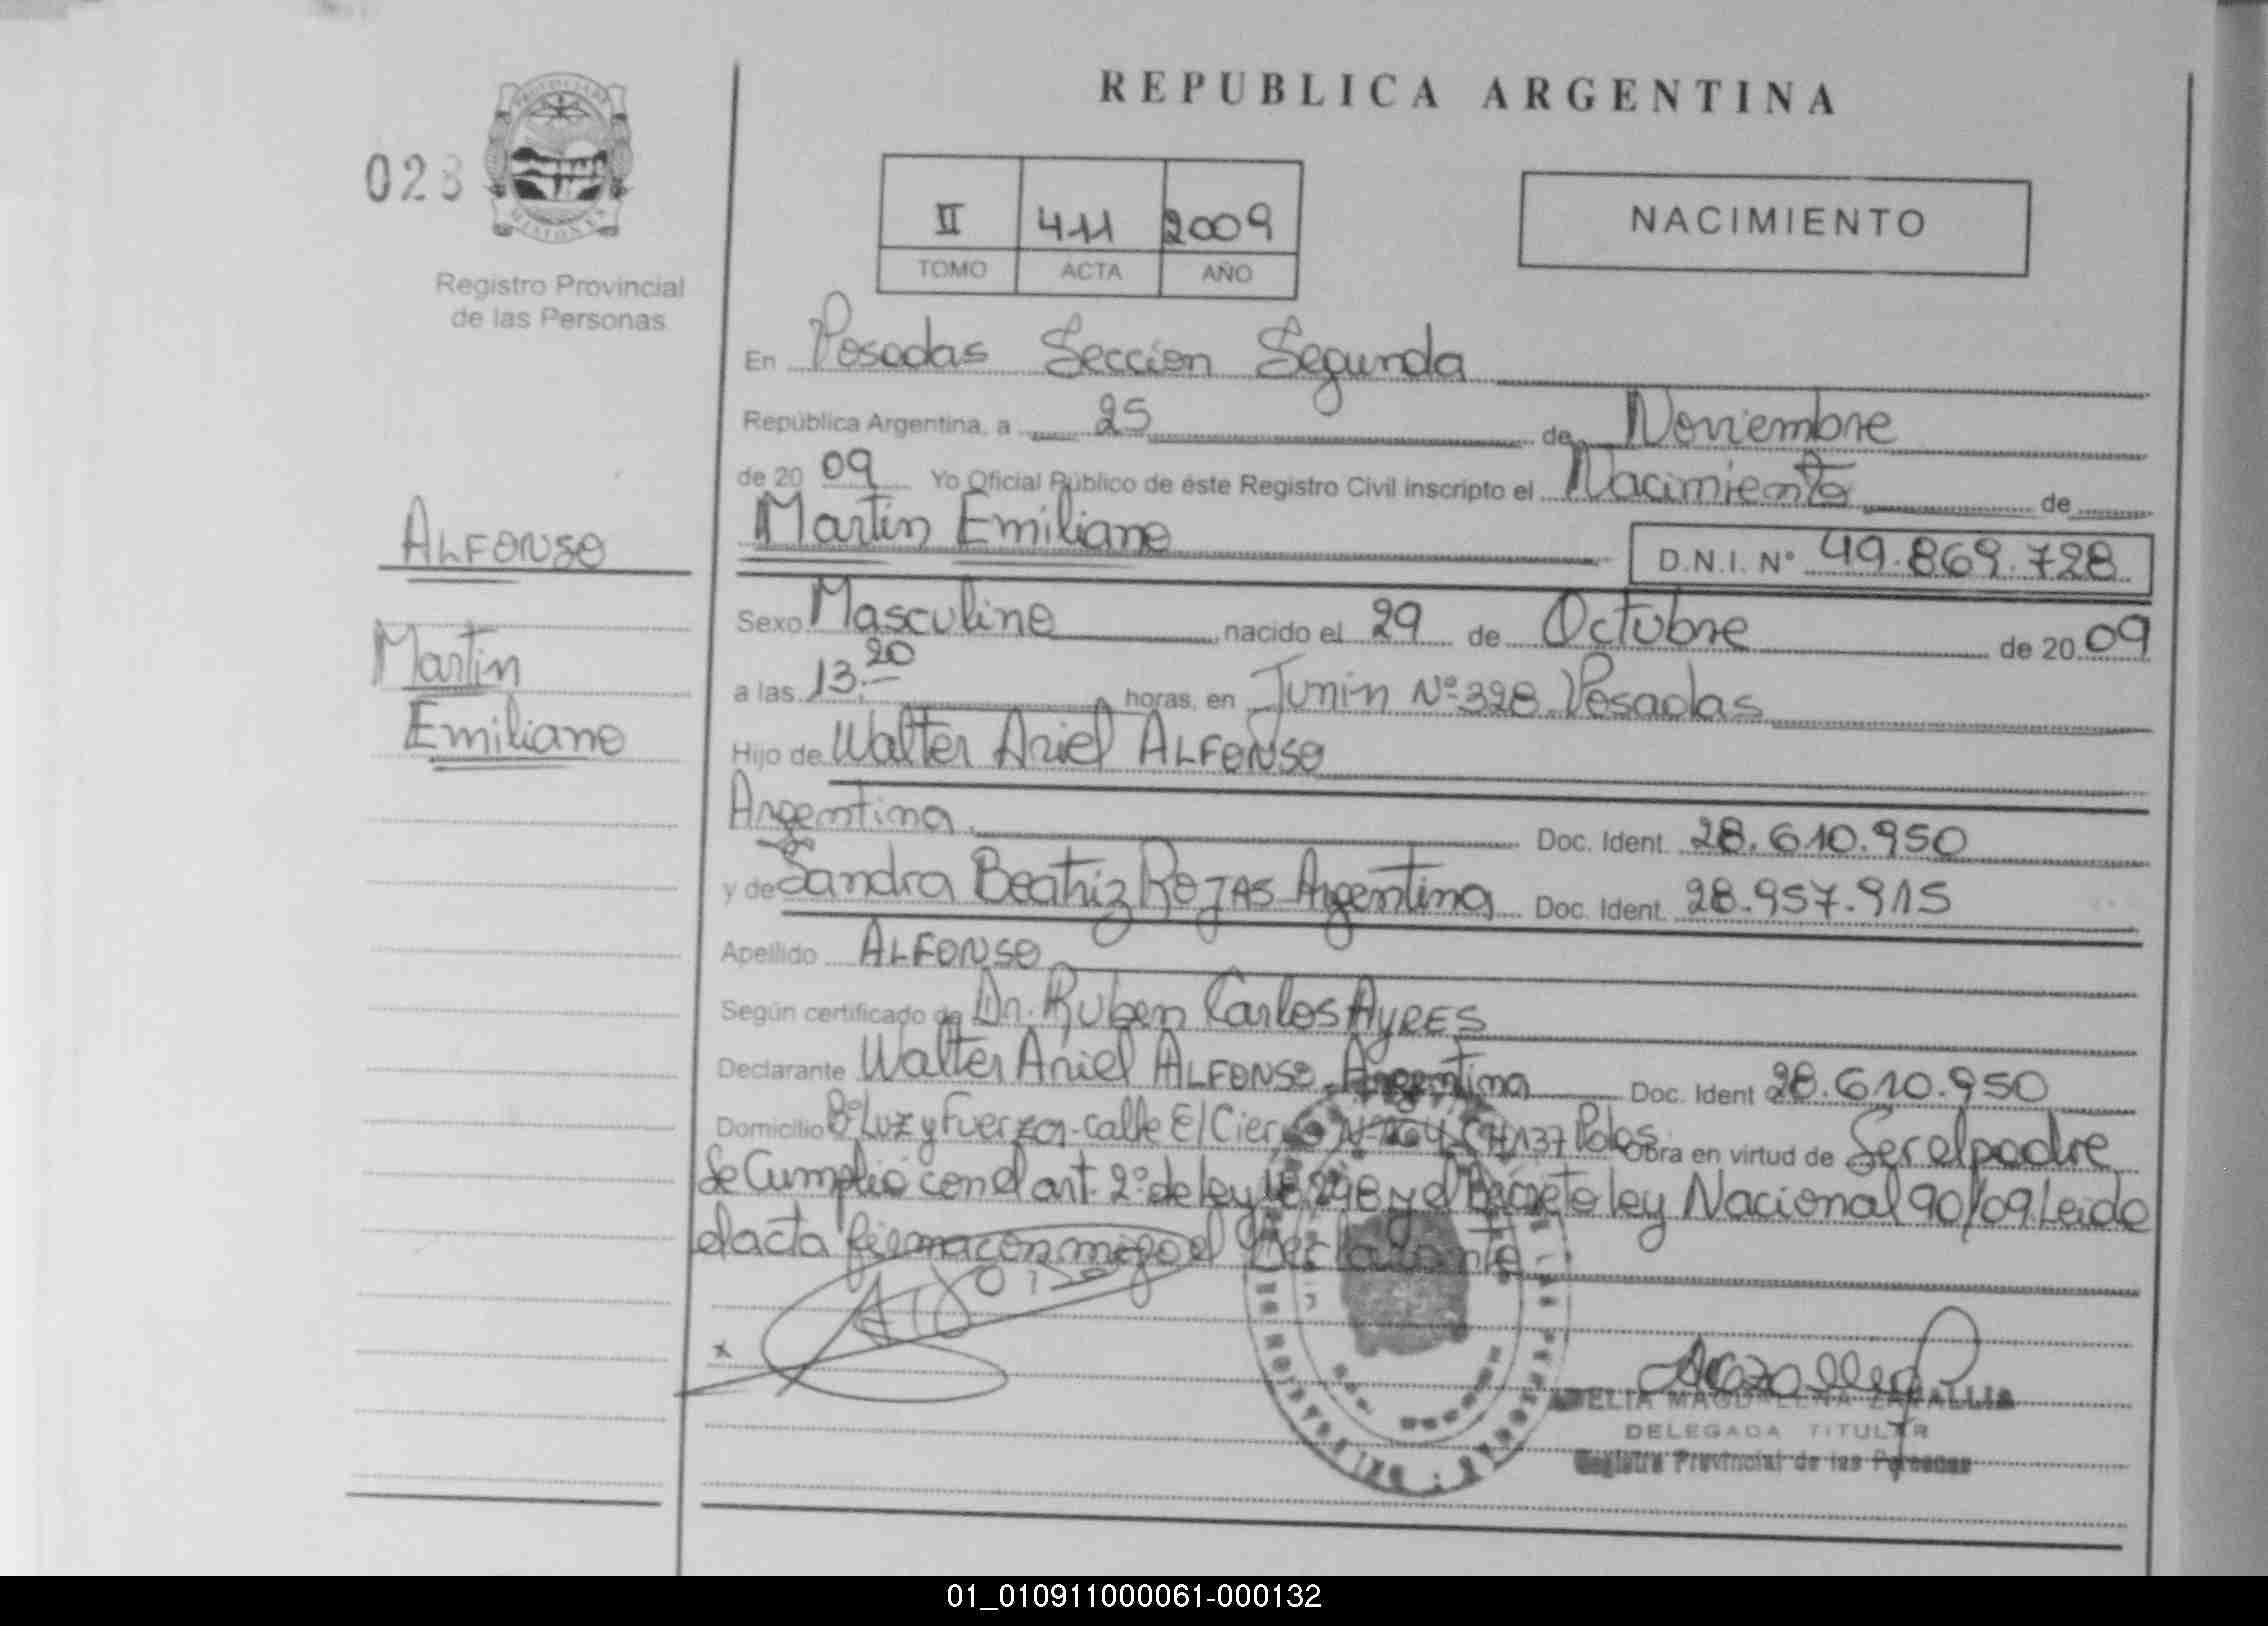 REPUBLICA ARGENTINA
PROVINCIA DE
MISIONES
023
Registro Provincial
de las Personas
II 411 2009
TOMO ACTA AÑO
NACIMIENTO
En Posadas Sección Segunda
República Argentina, a 25 de Noviembre
de 20 09 Yo Oficial Público de éste Registro Civil inscripto el Nacimiento de
Martín Emiliano D.N.I. Nº 49.869.728
ALFONSO
Martín
Emiliano
Sexo Masculino nacido el 29 de Octubre de 20 09
a las 13.20 horas, en Junín Nº 328 Posadas
Hijo de Walter Ariel ALFONSO
Argentina Doc. Ident. 28.610.950
y de Sandra Beatriz ROJAS Argentina Doc. Ident. 28.957.915
Apellido ALFONSO
Según certificado de Dr. Ruben Carlos AYRES
Declarante Walter Ariel ALFONSO Argentina Doc. Ident 28.610.950
Domicilio Bº Luz y Fuerza - calle El CH 137 Pdas. Obra en virtud de Ser el padre
Se Cumplió con el art. 2º de ley 18.248 y el Decreto ley Nacional 90/09. Leída
el acta firma conmigo el Declarante
x
MAGDALENA
DELEGADA TITULAR
Registro Provincial de las Personas
01_010911000061-000132